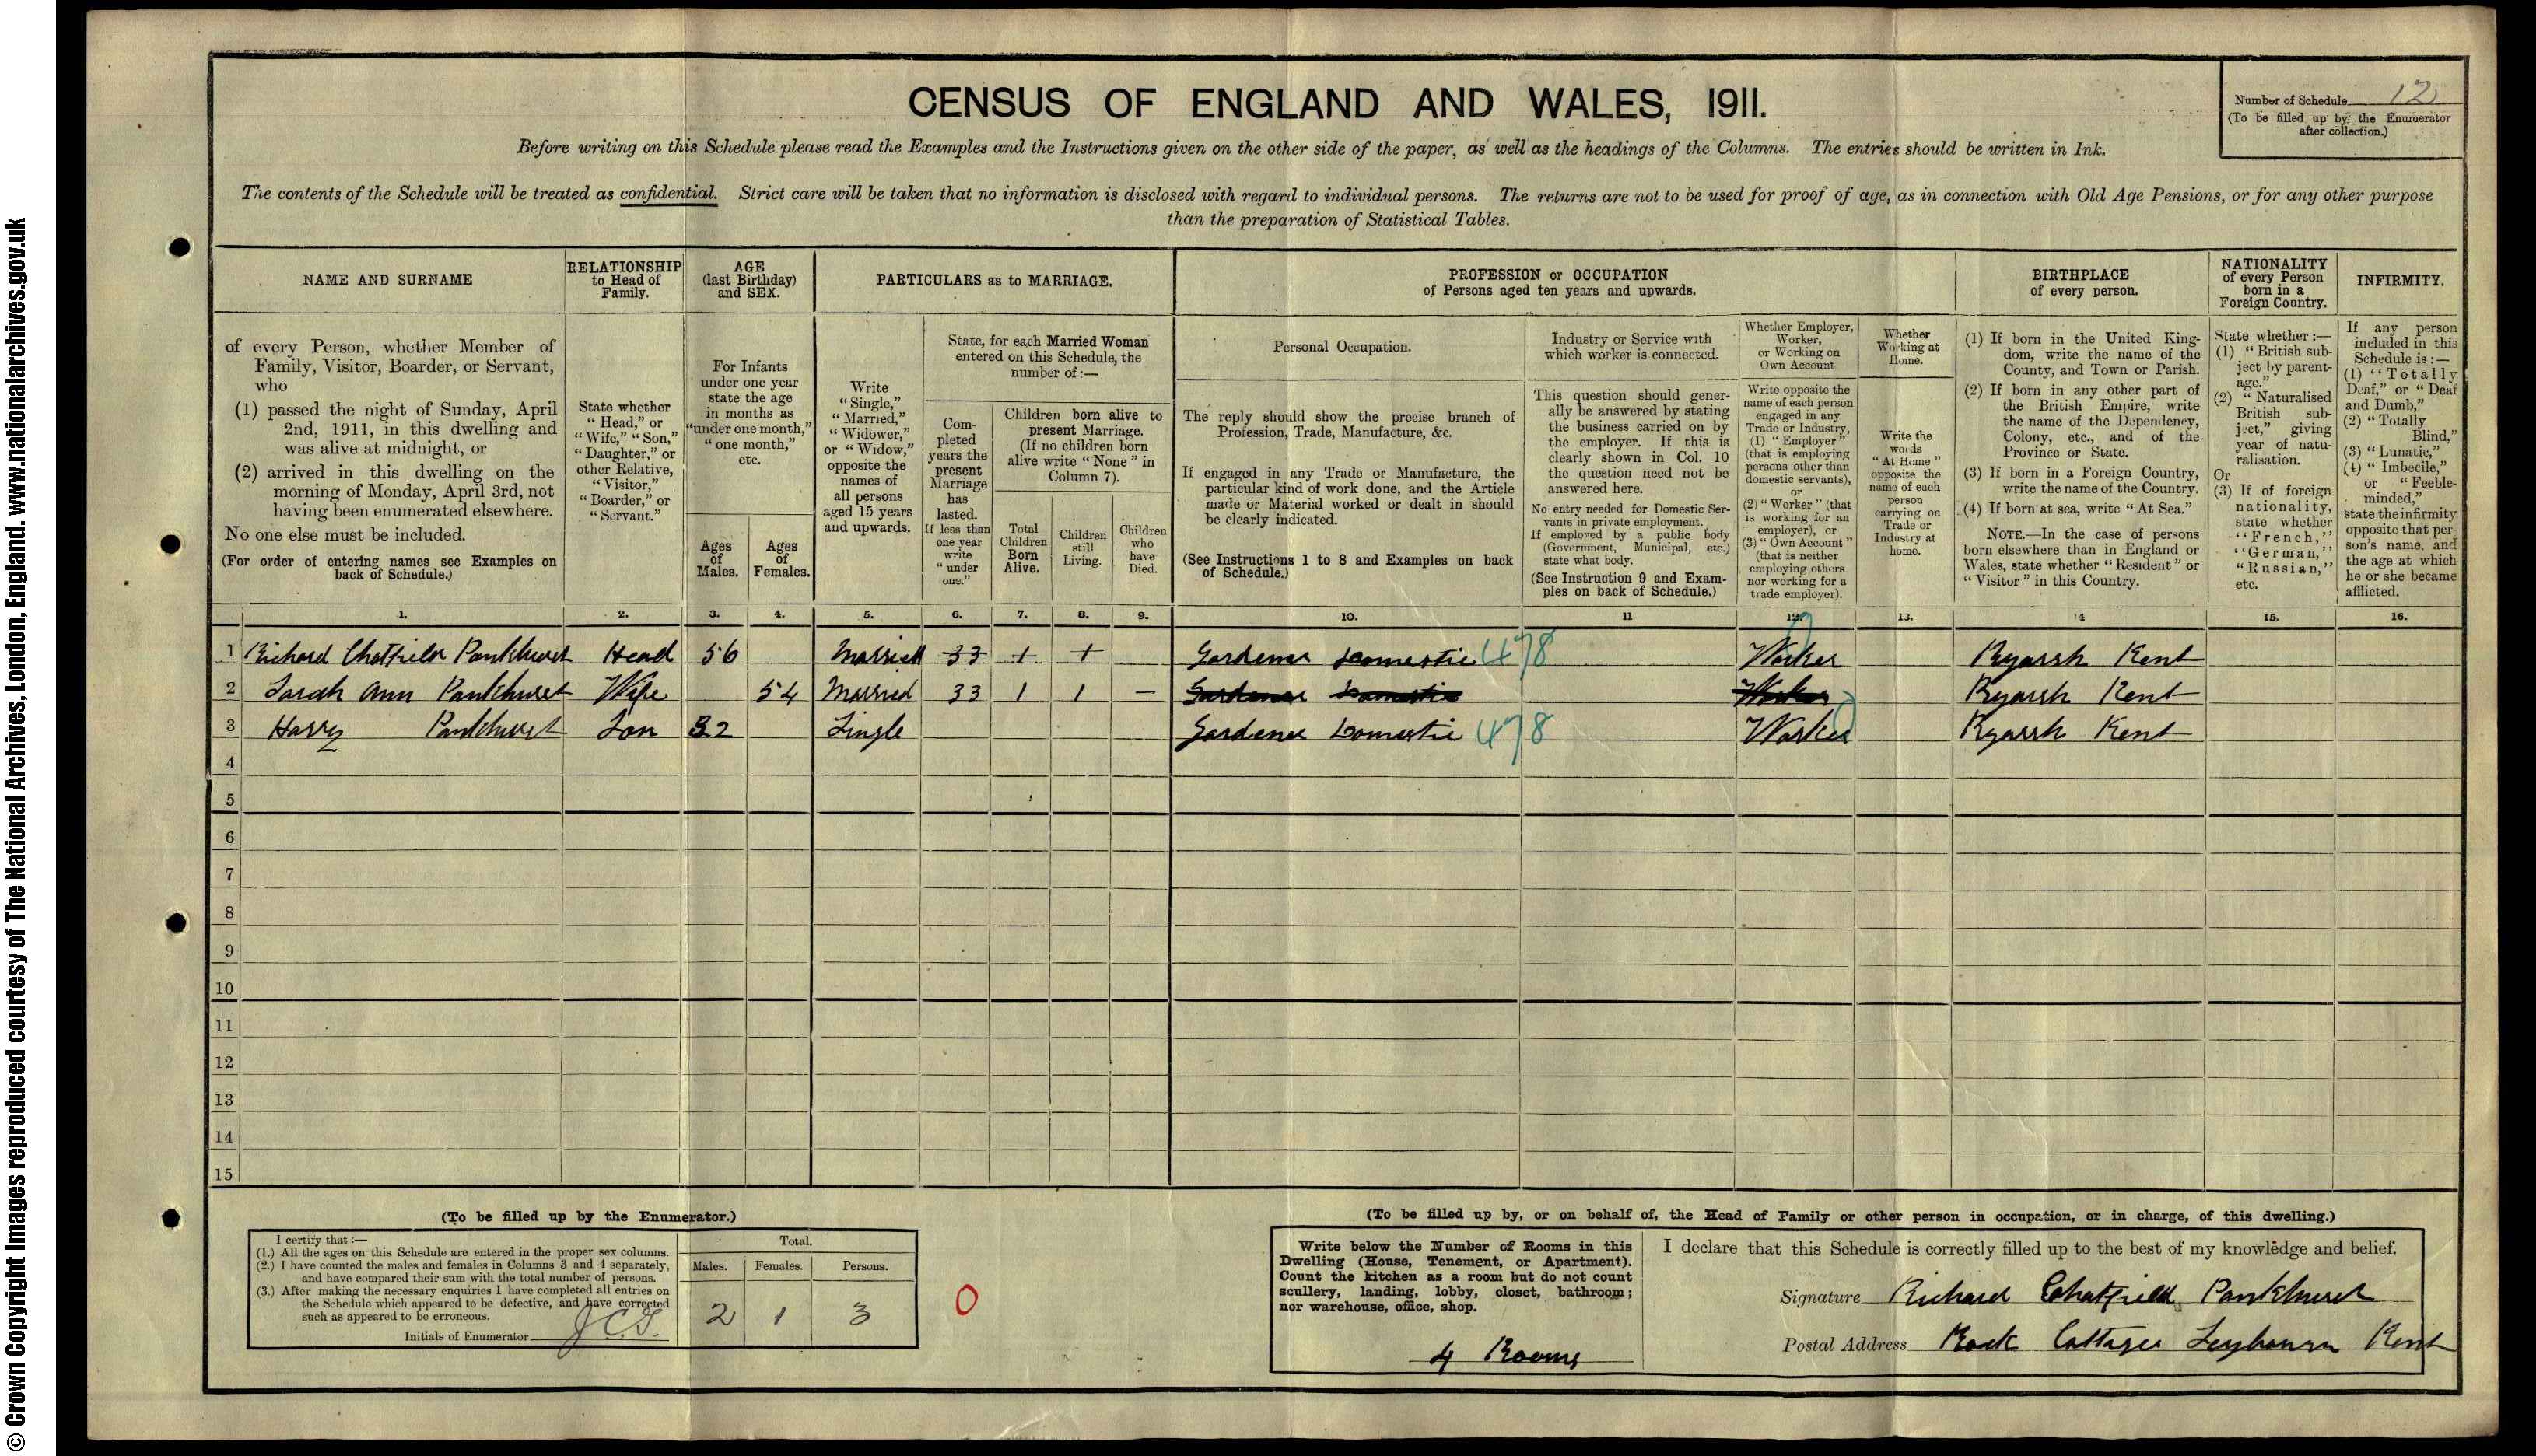 © Crown Copyright Images reproduced courtesy of The National Archives, London, England. www.nationalarchives.gov.uk
CENSUS OF ENGLAND AND WALES, 1911.
Number of Schedule 12
(To be filled up by the Enumerator
after collection.)
Before writing on this Schedule please read the Examples and the Instructions given on the other side of the paper, as well as the headings of the Columns. The entries should be written in Ink.
The contents of the Schedule will be treated as confidential. Strict care will be taken that no information is disclosed with regard to individual persons. The returns are not to be used for proof of age, as in connection with Old Age Pensions, or for any other purpose
than the preparation of Statistical Tables.
NAME AND SURNAME
RELATIONSHIP
to Head of
Family.
AGE
(last Birthday)
and SEX.
PARTICULARS as to MARRIAGE.
PROFESSION or OCCUPATION
of Persons aged ten years and upwards.
BIRTHPLACE
of every person.
NATIONALITY
of every Person
born in a
Foreign Country.
INFIRMITY.
of every Person, whether Member of
Family, Visitor, Boarder, or Servant,
who
(1) passed the night of Sunday, April
2nd, 1911, in this dwelling and
was alive at midnight, or
(2) arrived in this dwelling on the
morning of Monday, April 3rd, not
having been enumerated elsewhere.
No one else must be included.
(For order of entering names see Examples on
back of Schedule.)
State whether
"Head," or
"Wife," "Son,"
"Daughter," or
other Relative,
"Visitor,"
"Boarder," or
"Servant."
For Infants
under one year
state the age
in months as
"under one month,"
"one month,"
etc.
Ages
of
Males.
Ages
of
Females.
Write
"Single,"
"Married,"
"Widower,"
or "Widow,"
opposite the
names of
all persons
aged 15 years
and upwards.
State, for each Married Woman
entered on this Schedule, the
number of :—
Com-
pleted
years the
present
Marriage
has
lasted.
If less than
one year
write
"under
one."
Children born alive to
present Marriage.
(If no children born
alive write "None" in
Column 7).
Total
Children
Born
Alive.
Children
still
Living.
Children
who
have
Died.
Personal Occupation.
The reply should show the precise branch of
Profession, Trade, Manufacture, &c.
If engaged in any Trade or Manufacture, the
particular kind of work done, and the Article
made or Material worked or dealt in should
be clearly indicated.
(See Instructions 1 to 8 and Examples on back
of Schedule.)
Industry or Service with
which worker is connected.
This question should gener-
ally be answered by stating
the business carried on by
the employer. If this is
clearly shown in Col. 10
the question need not be
answered here.
No entry needed for Domestic Ser-
vants in private employment.
If employed by a public body
(Government, Municipal, etc.)
state what body.
(See Instruction 9 and Exam-
ples on back of Schedule.)
Whether Employer,
Worker,
or Working on
Own Account
Write opposite the
name of each person
engaged in any
Trade or Industry,
(1) "Employer"
(that is employing
persons other than
domestic servants),
or
(2) "Worker" (that
is working for an
employer), or
(3) "Own Account"
(that is neither
employing others
nor working for a
trade employer).
Whether
Working at
Home.
Write the
words
"At Home"
opposite the
name of each
person
carrying on
Trade or
Industry at
home.
(1) If born in the United King-
dom, write the name of the
County, and Town or Parish.
(2) If born in any other part of
the British Empire, write
the name of the Dependency,
Colony, etc., and of the
Province or State.
(3) If born in a Foreign Country,
write the name of the Country.
(4) If born at sea, write "At Sea."
NOTE.—In the case of persons
born elsewhere than in England or
Wales, state whether "Resident" or
"Visitor" in this Country.
State whether :—
(1) "British sub-
ject by parent-
age."
(2) "Naturalised
British sub-
ject," giving
year of natu-
ralisation.
Or
(3) If of foreign
nationality,
state whether
"French,"
"German,"
"Russian,"
etc.
If any person
included in this
Schedule is :—
(1) "Totally
Deaf," or "Deaf
and Dumb,"
(2) "Totally
Blind,"
(3) "Lunatic,"
(4) "Imbecile,"
or "Feeble-
minded,"
state the infirmity
opposite that per-
son's name, and
the age at which
he or she became
afflicted.
1. 2. 3. 4. 5. 6. 7. 8. 9. 10. 11 12. 13. 14 15. 16.
1 Richard Chatfield Pankhurst Head 56 Married 33 1 1 Gardener Domestic 478 Worker Ryarsh Kent
2 Sarah Ann Pankhurst Wife 54 Married 33 1 1 — Gardener Domestic Worker Ryarsh Kent
3 Harry Pankhurst Son 32 Single Gardener Domestic 478 Worker Ryarsh Kent
4
5
6
7
8
9
10
11
12
13
14
15
(To be filled up by the Enumerator.)
I certify that :—
(1.) All the ages on this Schedule are entered in the proper sex columns.
(2.) I have counted the males and females in Columns 3 and 4 separately,
and have compared their sum with the total number of persons.
(3.) After making the necessary enquiries I have completed all entries on
the Schedule which appeared to be defective, and have corrected
such as appeared to be erroneous.
Initials of Enumerator
Total.
Males. Females. Persons.
2 1 3
0
(To be filled up by, or on behalf of, the Head of Family or other person in occupation, or in charge, of this dwelling.)
Write below the Number of Rooms in this
Dwelling (House, Tenement, or Apartment).
Count the kitchen as a room but do not count
scullery, landing, lobby, closet, bathroom;
nor warehouse, office, shop.
4 Rooms
I declare that this Schedule is correctly filled up to the best of my knowledge and belief.
Signature Richard Chatfield Pankhurst
Postal Address Rock Cottages Leybourn Kent